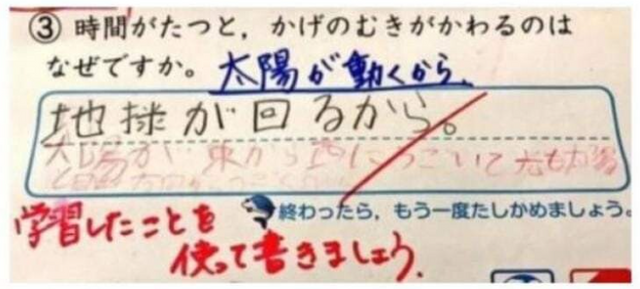 ③ 時間がたつと，かげのむきがかわるのは
なぜですか。 太陽が動くから。
地球が回るから。
太陽が 東から
終わったら，もう一度たしかめましょう。
学習したことを
使って書きましょう。